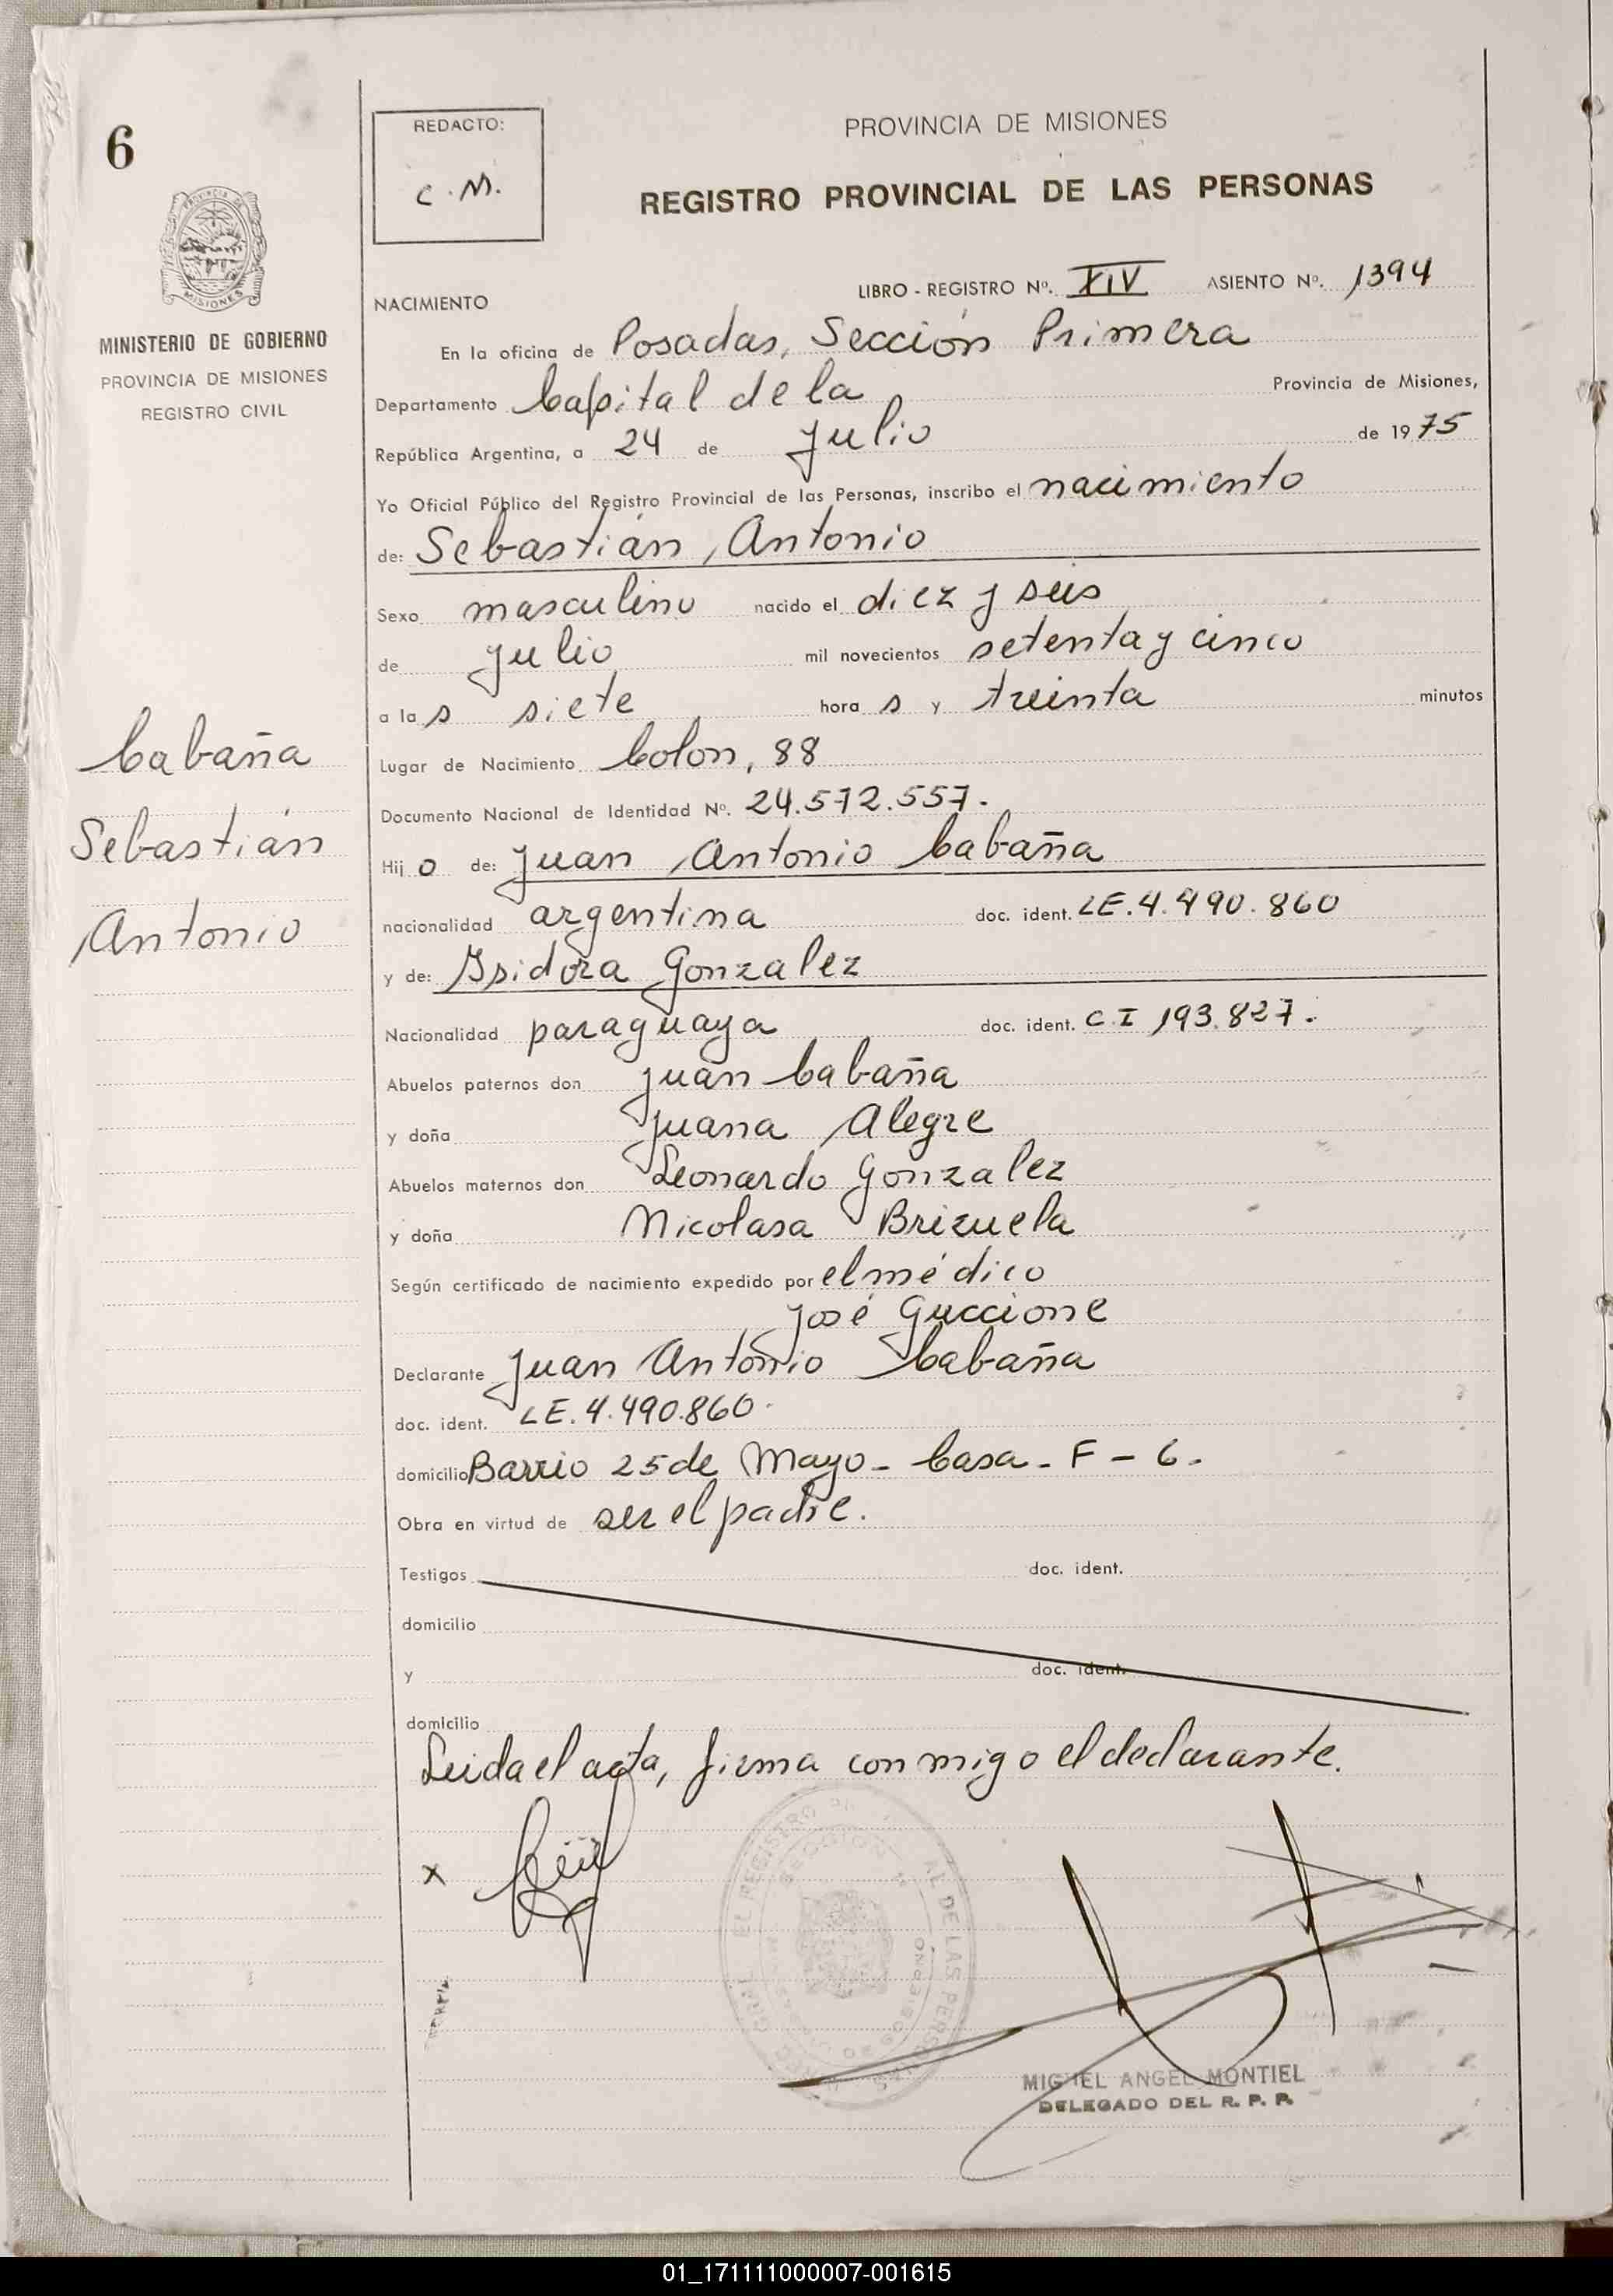 6
MINISTERIO DE GOBIERNO
PROVINCIA DE MISIONES
REGISTRO CIVIL
Cabaña
Sebastián
Antonio
REDACTO:
C. M.
PROVINCIA DE MISIONES
REGISTRO PROVINCIAL DE LAS PERSONAS
NACIMIENTO LIBRO - REGISTRO Nº. XIV ASIENTO Nº. 1394
En la oficina de Posadas, Sección Primera
Departamento Capital de la Provincia de Misiones,
República Argentina, a 24 de Julio de 1975
Yo Oficial Público del Registro Provincial de las Personas, inscribo el nacimiento
de: Sebastián, Antonio
Sexo masculino nacido el diez y seis
de Julio mil novecientos setenta y cinco
a las siete horas y treinta minutos
Lugar de Nacimiento Colon, 88
Documento Nacional de Identidad Nº. 24.572.557.
Hijo de: Juan Antonio Cabaña
nacionalidad argentina doc. ident. LE. 4.490.860
y de: Isidora Gonzalez
Nacionalidad paraguaya doc. ident. C.I 193.827.
Abuelos paternos don Juan Cabaña
y doña Juana Alegre
Abuelos maternos don Leonardo Gonzalez
y doña Nicolasa Brizuela
Según certificado de nacimiento expedido por el médico
José Guccione
Declarante Juan Antonio Cabaña
doc. ident. LE. 4.490.860.
domicilio Barrio 25 de Mayo - Casa - F - 6.
Obra en virtud de ser el padre.
Testigos doc. ident.
domicilio
y doc. ident.
domicilio
Leida el acta, firma conmigo el declarante.
x
MIGUEL ANGEL MONTIEL
DELEGADO DEL R. P. P.
01_171111000007-001615